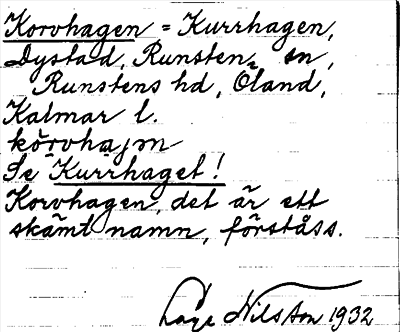 Korvhagen = Kurrhagen,
Dystad, Runsten sn,
Runstens hd, Öland,
Kalmar l.
kŏrvhajm
Se Kurrhaget!
Korvhagen, det är ett
skämtnamn, förståss.
Nilsson 1932